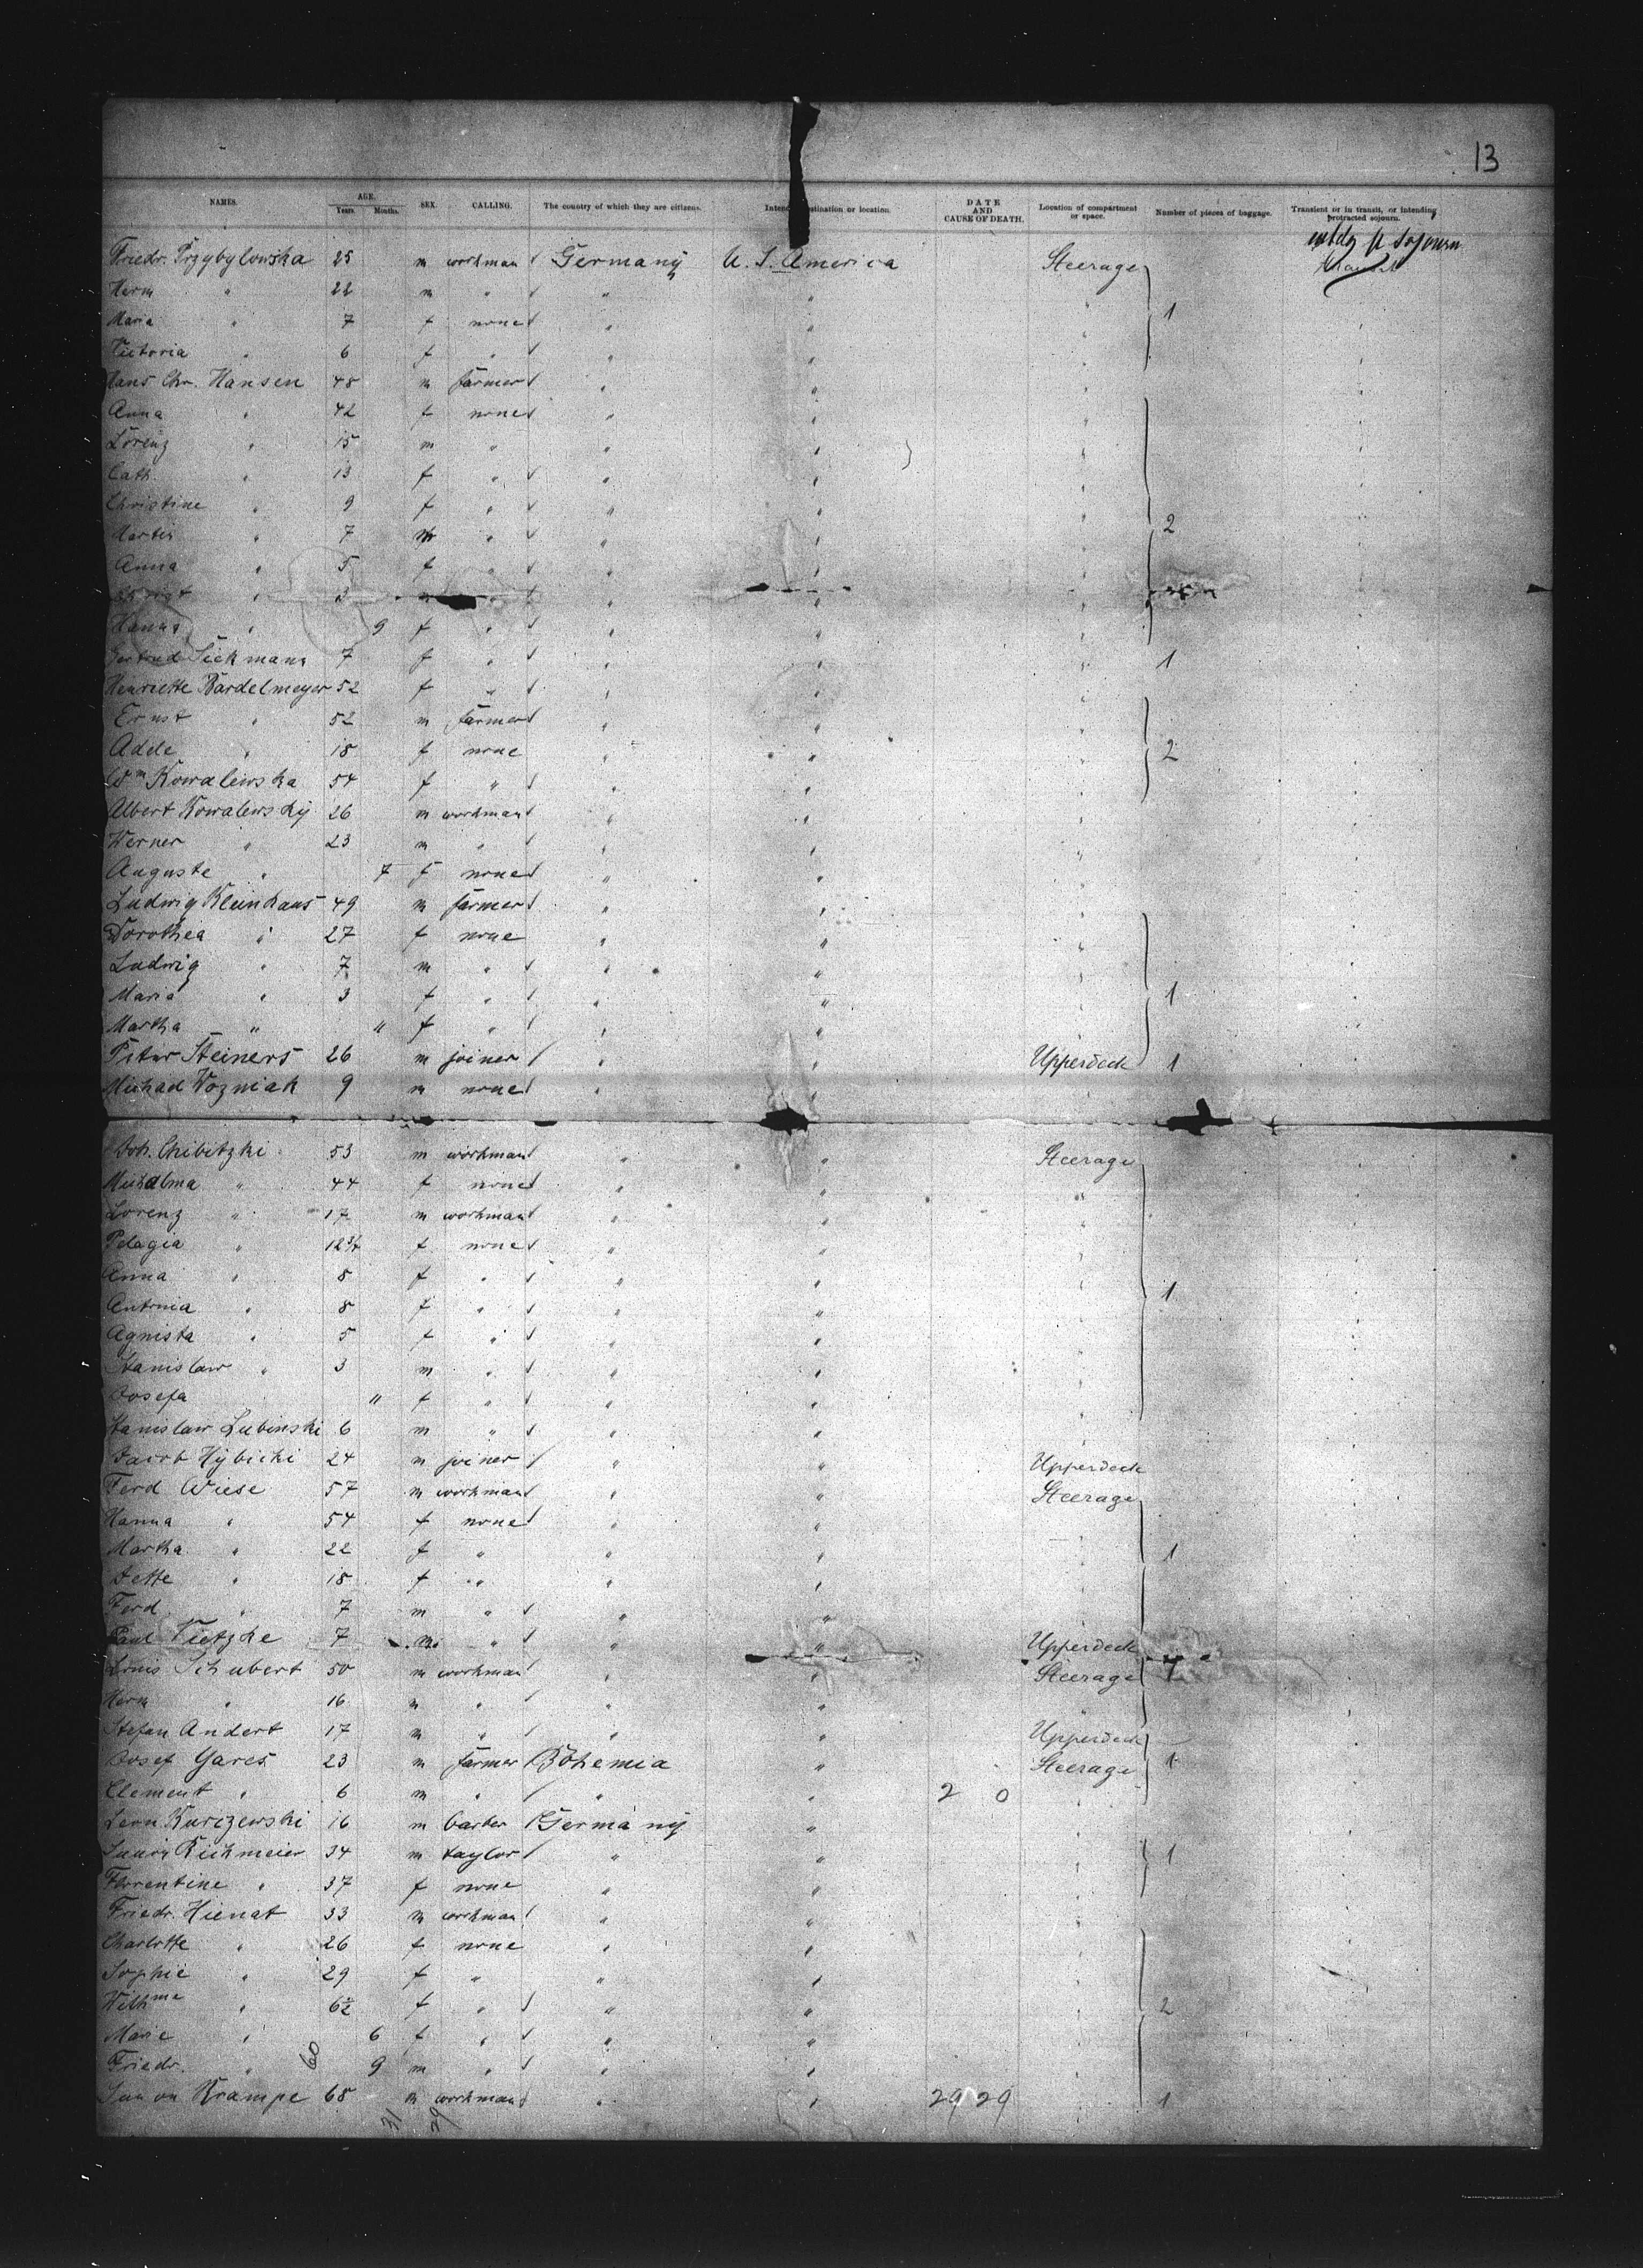 13
NAMES. AGE. Years. Months. SEX. CALLING. The country of which they are citizens. destination or location. DATE AND CAUSE OF DEATH. Location of compartment or space. Number of pieces of baggage. Transient or in transit, or intending protracted sojourn.
Friedr. Przybylowska 25 m workman Germany U. S. America Steerage sojourn
Herm " 22 m " " " "
Maria " 7 f none " " " 1
Victoria " 6 f " " " "
Hans Chr. Hansen 48 m farmer " " "
Anna " 42 f none " " "
Lorenz " 15 m " " " "
Cath. " 13 f " " " "
Christine " 9 f " " " "
Martin " 7 m " " " " 2
Anna " 5 f " " " "
" 3 " " " "
Hanna " 9 f " " " "
Gertrud Siekmann 7 f " " " " 1
Henriette Bardelmeyer 52 f " " " "
Ernst " 52 m farmer " " "
Adele " 18 f none " " " 2
Wm Kowalewska 54 f " " " "
Albert Kowalewsky 26 m workman " " "
Werner " 23 m " " " "
Auguste " 7 f none " " "
Ludwig Kleinhaus 49 m farmer " " "
Dorothea " 27 f none " " "
Ludwig " 7 m " " " "
Maria " 3 f " " " " 1
Martha " " f " " " "
Peter Steiners 26 m joiner " " Upperdeck 1
Michael Wozniak 9 m none " "
Joh. Chibitzki 53 m workman " " Steerage
" 44 f none " " "
Lorenz " 17 m workman " " "
Pelagia " 12 f none " " "
Anna " 8 f " " " "
Antonia " 8 f " " " " 1
Agnista " 5 f " " " "
Stanislaw " 3 m " " " "
Josefa " f " " " "
Stanislaw Lubinski 6 m " " " "
Jacob Hybicki 24 m joiner " " Upperdeck
Ferd Wiese 57 m workman " " Steerage
Hanna " 54 f none " " "
Martha " 22 f " " " " 1
Jette " 18 f " " " "
Ferd. " 7 m " " " "
Paul Tietzke 7 m " " " Upperdeck
Louis Schubert 50 m workman " " Steerage 1
Herm " 16 m " " " "
Stefan Andert 17 m " " " Upperdeck
Josef Gares 23 m farmer Bohemia " Steerage 1
Clement " 6 m " " " 2 0 "
Leon Kurczewski 16 m barber Germany " "
Richmeier 34 m taylor " " " 1
Florentine " 37 f none " " "
Friedr. Hienat 33 m workman " " "
Charlotte " 26 f none " " "
Sophie " 29 f " " " "
Wilhme " f " " " " 2
Marie " 6 f " " " "
Friedr. " 60 9 m " " " "
Krampe 68 m workman " " 29 29 " 1
31 29